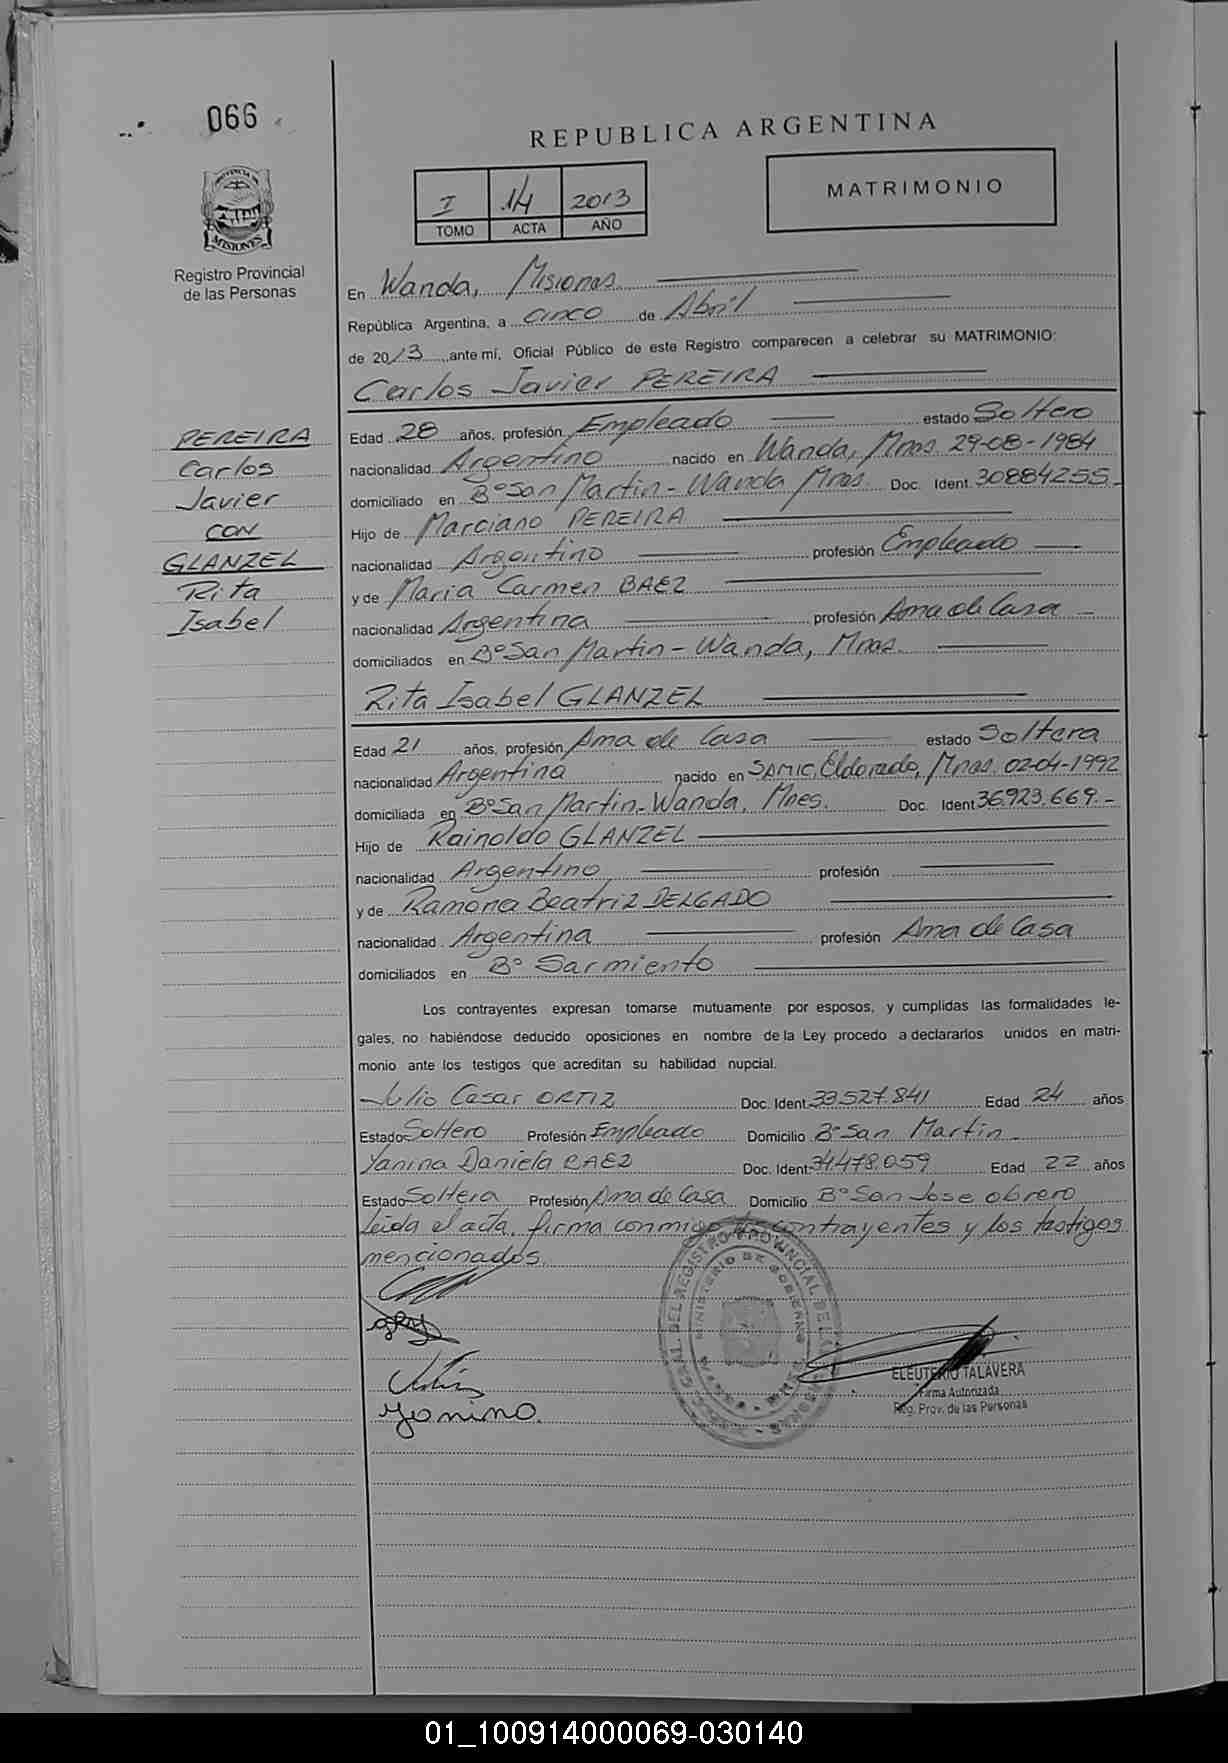 066
REPUBLICA ARGENTINA
I 14 2013
TOMO ACTA AÑO
MATRIMONIO
PROVINCIA DE
MISIONES
Registro Provincial
de las Personas
En Wanda, Misiones
República Argentina, a cinco de Abril
de 2013, ante mí, Oficial Público de este Registro comparecen a celebrar su MATRIMONIO:
Carlos Javier PEREIRA
PEREIRA
Carlos
Javier
CON
GLANZEL
Rita
Isabel
Edad 28 años, profesión Empleado estado Soltero
nacionalidad Argentino nacido en Wanda, Mnes. 29-08-1984
domiciliado en B° San Martin - Wanda Mnes. Doc. Ident. 30884255-
Hijo de Marciano PEREIRA
nacionalidad Argentino profesión Empleado
y de Maria Carmen BAEZ
nacionalidad Argentina profesión Ama de Casa
domiciliados en B° San Martin - Wanda, Mnes.
Rita Isabel GLANZEL
Edad 21 años, profesión Ama de Casa estado Soltera
nacionalidad Argentina nacido en SAMIC, Eldorado, Mnes. 02-04-1992
domiciliada en B° San Martin-Wanda, Mnes. Doc. Ident 36.923.669.-
Hijo de Rainoldo GLANZEL
nacionalidad Argentino profesión
y de Ramona Beatriz DELGADO
nacionalidad Argentina profesión Ama de Casa
domiciliados en B° Sarmiento
Los contrayentes expresan tomarse mutuamente por esposos, y cumplidas las formalidades le-
gales, no habiéndose deducido oposiciones en nombre de la Ley procedo a declararlos unidos en matri-
monio ante los testigos que acreditan su habilidad nupcial.
Julio Cesar ORTIZ Doc. Ident. 33.527.841 Edad 24 años
Estado Soltero Profesión Empleado Domicilio B° San Martin
Yanina Daniela BAEZ Doc. Ident. 34.478.059 Edad 22 años
Estado Soltera Profesión Ama de Casa Domicilio B° San Jose obrero
Leida el acta, firma conmigo los contrayentes y los testigos
mencionados.
Yanina.
DEL REGISTRO PROVINCIAL DE LAS PERSONAS
MINISTERIO DE GOBIERNO
ELEUTERIO TALAVERA
Firma Autorizada
Reg. Prov. de las Personas
01_100914000069-030140